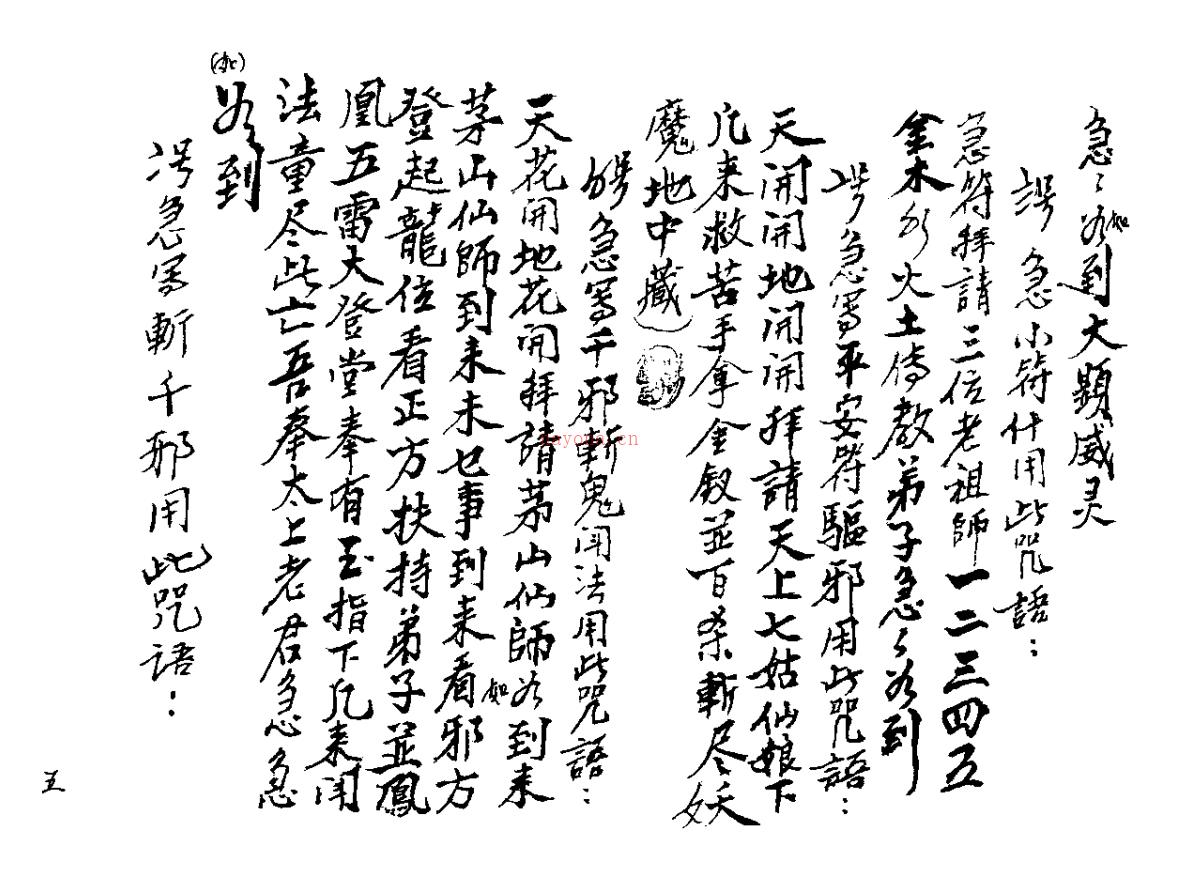 急〻如到大顯威灵
急小符什用此咒語：
急符拜請三位老祖師一二三四五
金木水火土傳教弟子急〻如到
急寫平安符驅邪用此咒語：
天開開地開開拜請天上七姑仙娘下
凡来救苦手拿金釵並百杀斬尽妖
魔地中藏
急寫千邪斬鬼闻法用此咒語：
天花開地花開拜請茅山仙師如到来
茅山仙師到来未乜事到来看邪方
登起龍位看正方扶持弟子並鳳
凰五雷大登堂奉有玉指下凡来闻
法童尽此亡吾奉太上老君急急
(如)
到
急寫斬千邪用此咒语：
五